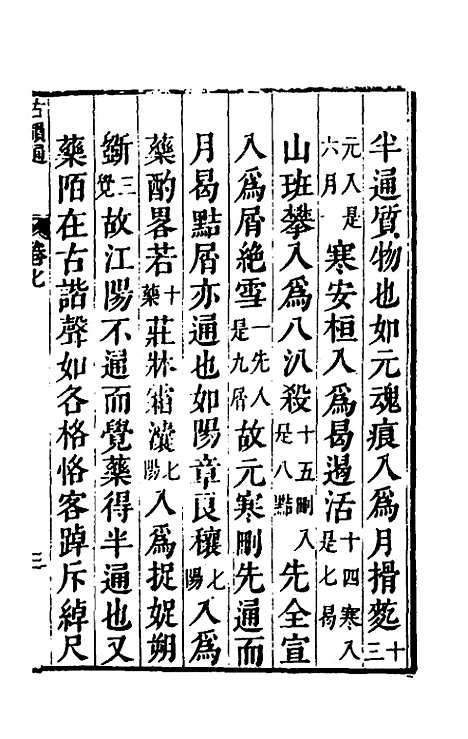 半通質物也如元魂痕入爲月搰麧十三
元入是六月寒安桓入爲曷遏活十四寒入是七曷
山班攀入爲八汃殺十五刪入是八黠先全宣
入爲屑絶雪一先入是九屑故元寒刪先通而
月曷黠屑亦通也如陽章良穰七陽入爲
藥酌畧若十藥莊牀霜瀧七陽入爲捉娖朔
斲三覺故江陽不通而覺藥得半通也又
藥陌在古諧聲如各格恪客踔斥綽尺
古韻通
卷七
三